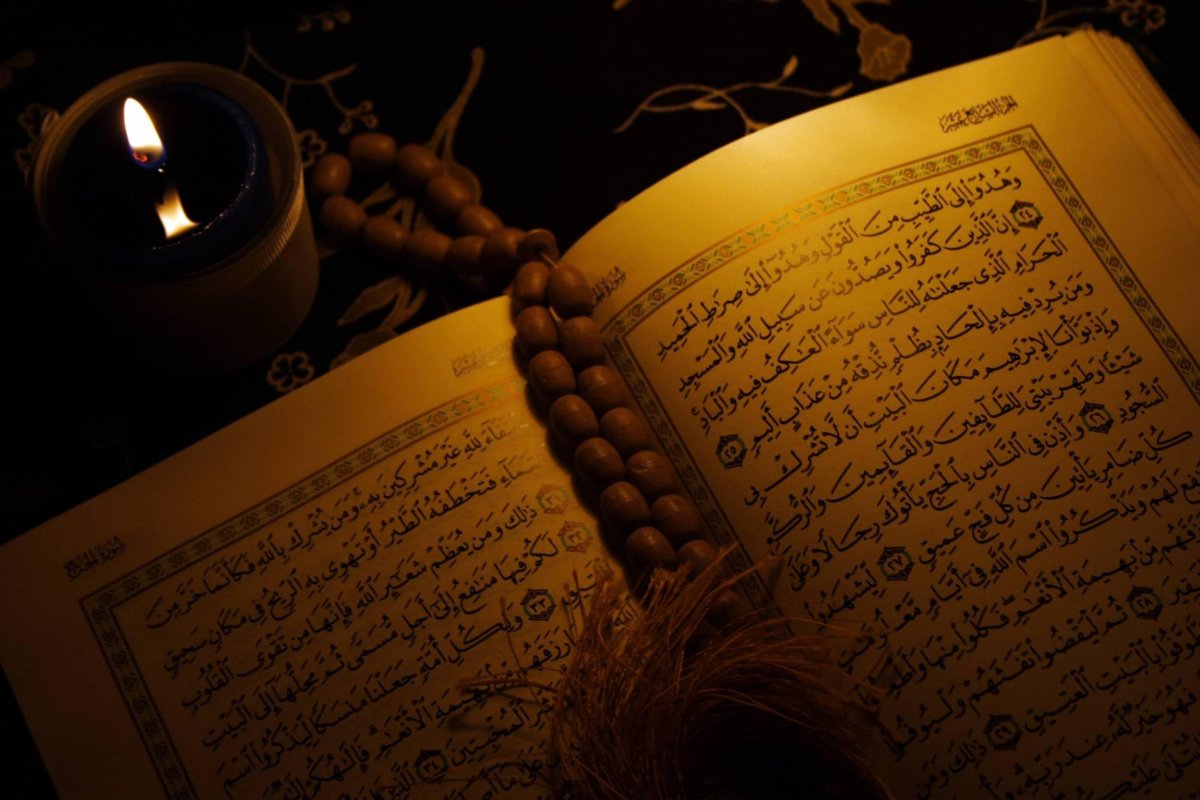 الجزء السابع عشر
سورة الحج
وَهُدُوٓا۟ إِلَى ٱلطَّيِّبِ مِنَ ٱلْقَوْلِ وَهُدُوٓا۟ إِلَىٰ صِرَٰطِ ٱلْحَمِيدِ
٢٤ إِنَّ ٱلَّذِينَ كَفَرُوا۟ وَيَصُدُّونَ عَن سَبِيلِ ٱللَّهِ وَٱلْمَسْجِدِ
ٱلْحَرَامِ ٱلَّذِى جَعَلْنَٰهُ لِلنَّاسِ سَوَآءً ٱلْعَٰكِفُ فِيهِ وَٱلْبَادِ ۚ
وَمَن يُرِدْ فِيهِ بِإِلْحَادٍۭ بِظُلْمٍ نُّذِقْهُ مِنْ عَذَابٍ أَلِيمٍ ٢٥
وَإِذْ بَوَّأْنَا لِإِبْرَٰهِيمَ مَكَانَ ٱلْبَيْتِ أَن لَّا تُشْرِكْ بِى
شَيْـًٔا وَطَهِّرْ بَيْتِىَ لِلطَّآئِفِينَ وَٱلْقَآئِمِينَ وَٱلرُّكَّعِ
ٱلسُّجُودِ ٢٦ وَأَذِّن فِى ٱلنَّاسِ بِٱلْحَجِّ يَأْتُوكَ رِجَالًا وَعَلَىٰ
كُلِّ ضَامِرٍ يَأْتِينَ مِن كُلِّ فَجٍّ عَمِيقٍ ٢٧ لِّيَشْهَدُوا۟
لَهُمْ وَيَذْكُرُوا۟ ٱسْمَ ٱللَّهِ فِىٓ أَيَّامٍ
مِّنۢ بَهِيمَةِ ٱلْأَنْعَٰمِ ۖ فَكُلُوا۟ مِنْهَا
٢٨ ثُمَّ لْيَقْضُوا۟ تَفَثَهُمْ وَلْيُوفُوا۟
بِٱلْبَيْتِ ٱلْعَتِيقِ ٢٩ ذَٰلِكَ وَمَن
خَيْرٌ لَّهُۥ عِندَ رَبِّهِۦ
عَلَيْكُمْ
سورة الحج
لِلَّهِ غَيْرَ مُشْرِكِينَ بِهِۦ ۚ وَمَن يُشْرِكْ بِٱللَّهِ فَكَأَنَّمَا خَرَّ مِنَ
فَتَخْطَفُهُ ٱلطَّيْرُ أَوْ تَهْوِى بِهِ ٱلرِّيحُ فِى مَكَانٍ سَحِيقٍ
٣١ ذَٰلِكَ وَمَن يُعَظِّمْ شَعَٰٓئِرَ ٱللَّهِ فَإِنَّهَا مِن تَقْوَى ٱلْقُلُوبِ
٣٢ لَكُمْ فِيهَا مَنَٰفِعُ إِلَىٰٓ أَجَلٍ مُّسَمًّى ثُمَّ مَحِلُّهَآ إِلَى ٱلْبَيْتِ
٣٣ وَلِكُلِّ أُمَّةٍ جَعَلْنَا مَنسَكًا لِّيَذْكُرُوا۟ ٱسْمَ
بَهِيمَةِ ٱلْأَنْعَٰمِ ۗ فَإِلَٰهُكُمْ
ٱلْمُخْبِتِينَ ٣٤ ٱلَّذِينَ